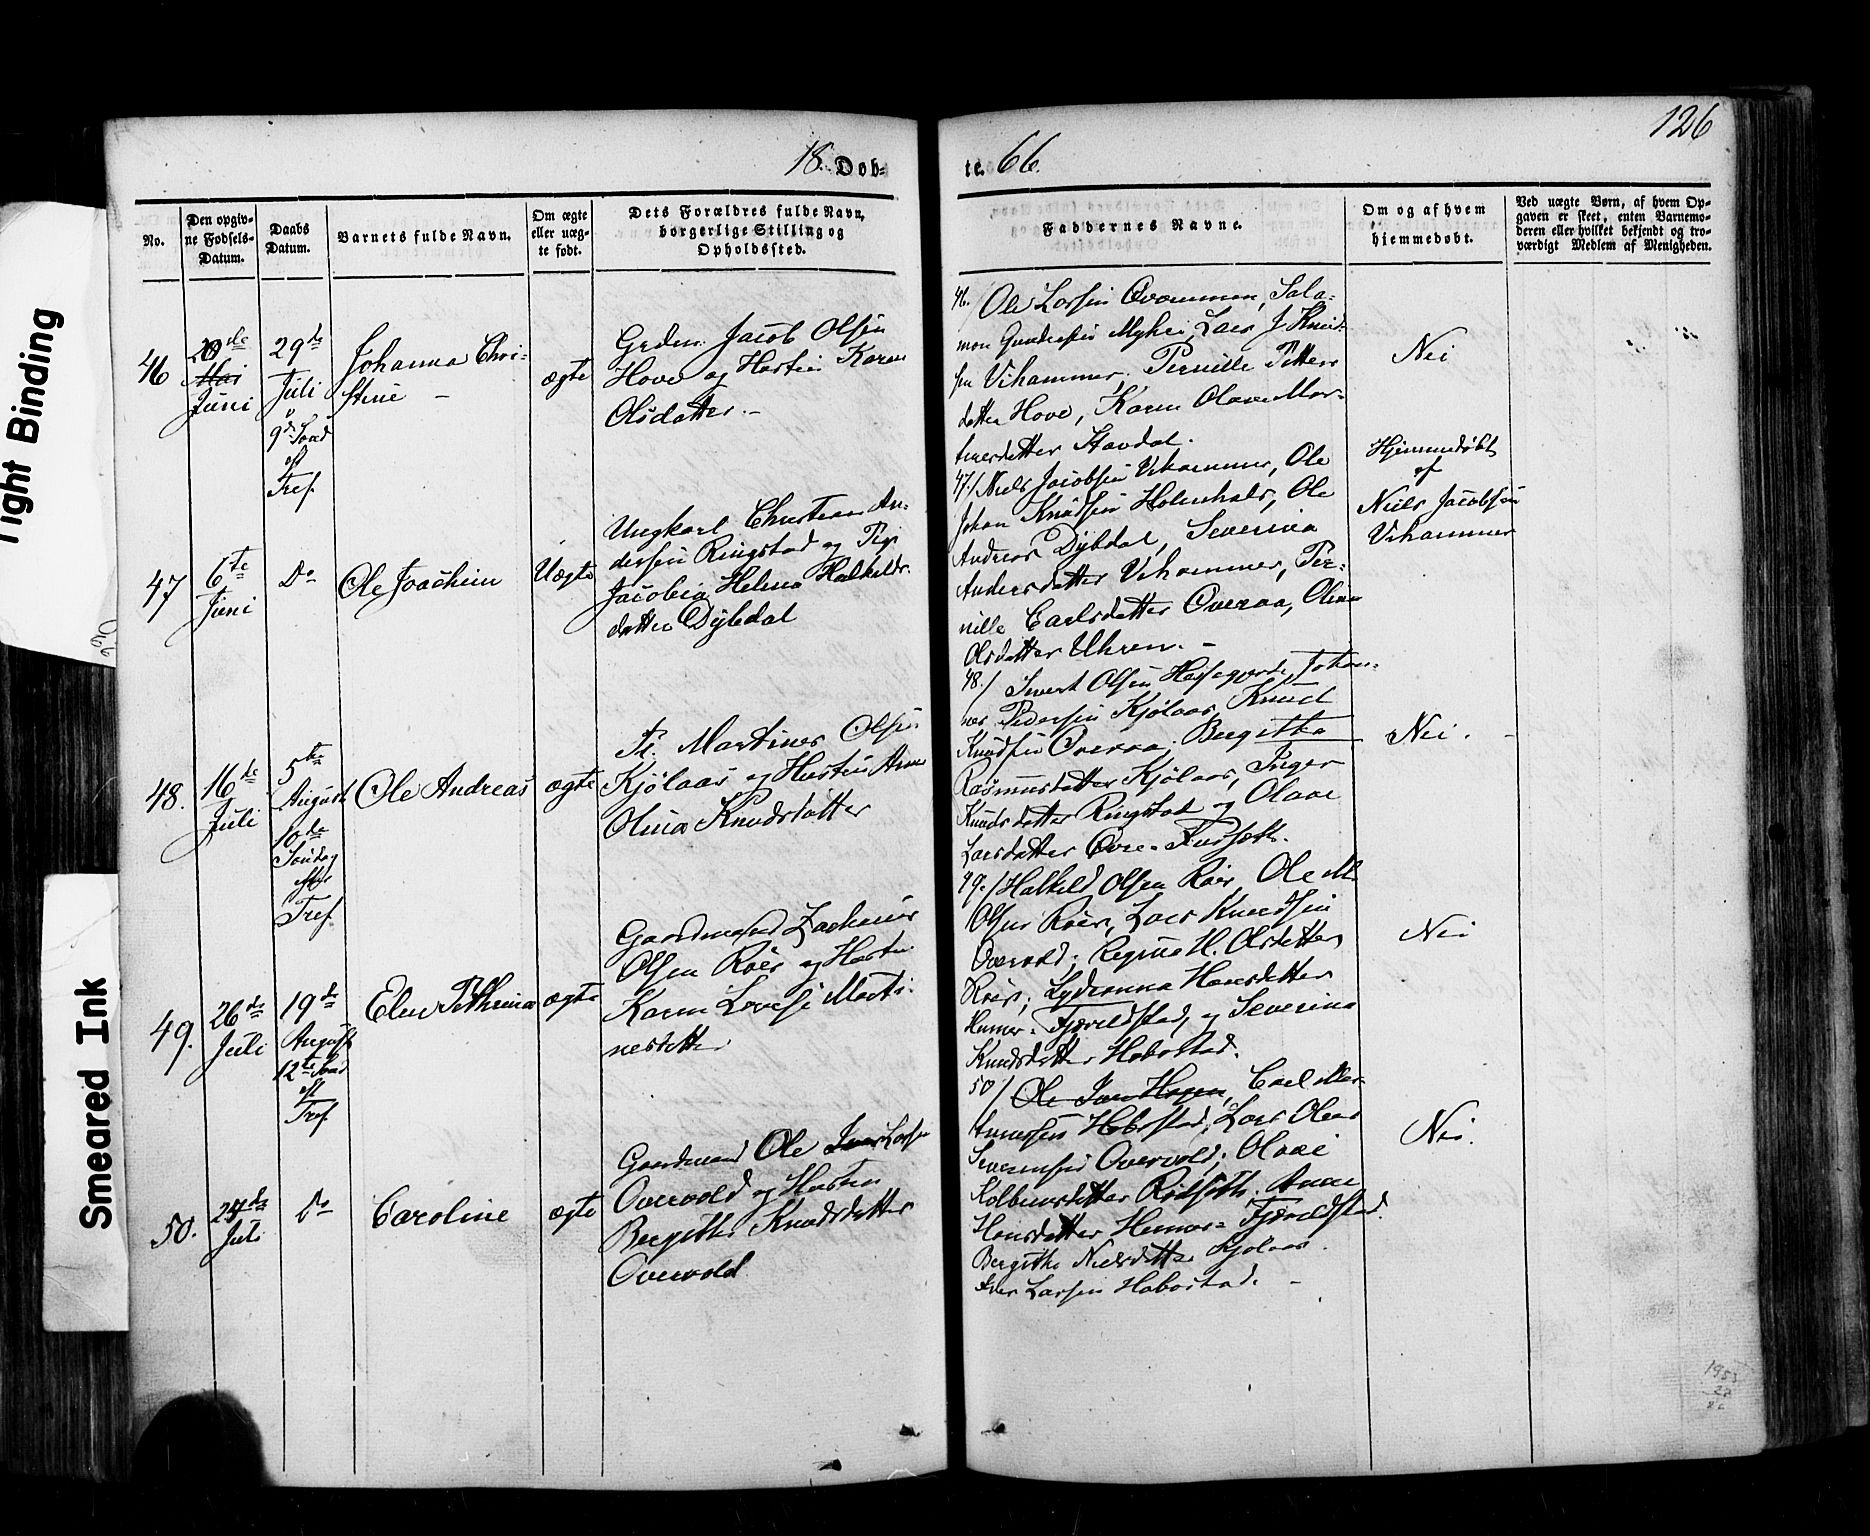 126
18 Døb-
te. 66.
No.
Den opgiv-
ne Fødsels-
Datum.
Daabs
Datum.
Barnets fulde Navn.
Om ægte
eller uæg-
te født.
Dets Forældres fulde Navn,
borgerlige Stilling og
Opholdssted.
Faddernes Navne.
Om og af hvem
hjemmedøbt.
Ved uægte Børn, af hvem Op-
gaven er skeet, enten Barnemo-
deren eller hvilket bekjendt og tro-
værdigt Medlem af Menigheden.
46
Mai
Juni
29de
Juli
9de Sønd
ef
Tref.
Johanna Chri-
stine –
ægte
Grdm. Jacob Olsen
Hove og Hustru Karen
Olsdatter. –
46. Ole Larsen Qvammen, Sala-
mon Gundersen Myhre, Lars J. Knud-
sen Vihammer. Pernille Petters
datter Hove, Karen Olave Mar-
tinesdatter Havdal.
Nei
47
6te
Juni
Do
Ole Joachim
Uægte
Ungkarl Christian An-
dersen Ringstad og Pige
Jacobia Helena Halkilds
datter Dybdal
47./ Niels Jacobsen Vihammer, Ole
Johan Knudsen Holenhals, Ole
Andreas Dybdal, Severina
Andersdatter Vihammer, Per-
nille Carlsdatter Overaa, Olina
Olsdatter Uhren. –
Hjemmedøbt
af
Niels Jacobsen
Vihammer
48.
16de
Juli
5te
August
10de
Søndag
efter
Tref
Ole Andreas
ægte
Martines Olsen
Kjølaas og Hustru Anne
Olina Knudsdatter
48./ Sivert Olsen Johan-
nes Pedersen Kjølaas, Knud
Knudsen Overaa, Bergitha
Rasmusdatter Kjølaas, Inger
Knudsdatter Ringstad og Olave
Larsdatter Øvre-
Nei. –
49.
26de
Juli
19de
August
12te Sønd
ef
Tref
Elen Pethrina
ægte
Gaardmand Zacharias
Olsen Roës og Hustru
Karen Lovise Marti-
nesdatter
49./ Halkild Olsen Roës, Ole M.
Olsen Roës, Lars Knudsen
Overvold; Regina H. Olsdatter
Roës; Lydianna Hansdatter
Humor-Fjæreldstad, og Severina
Knudsdatter Habostad.
Nei
50.
Juli
Do
Caroline
ægte
Gaardmand Ole Iver Larsen
Overvold og Hustru
Bergithe Knudsdatter
Overvold
50/ Ole Iver Hagen, Carl Mar-
tinussen Habostad, Lars Olaus
Severinsen Overvold; Olave
Kolbensdatter Rødseth. Anne
Hansdatter Humor-Fjæreldstad.
Bergithe Nielsdatter Kjølaas.
Iver Larsen Habostad. –
Nei.
Tight Binding
Smeared Ink